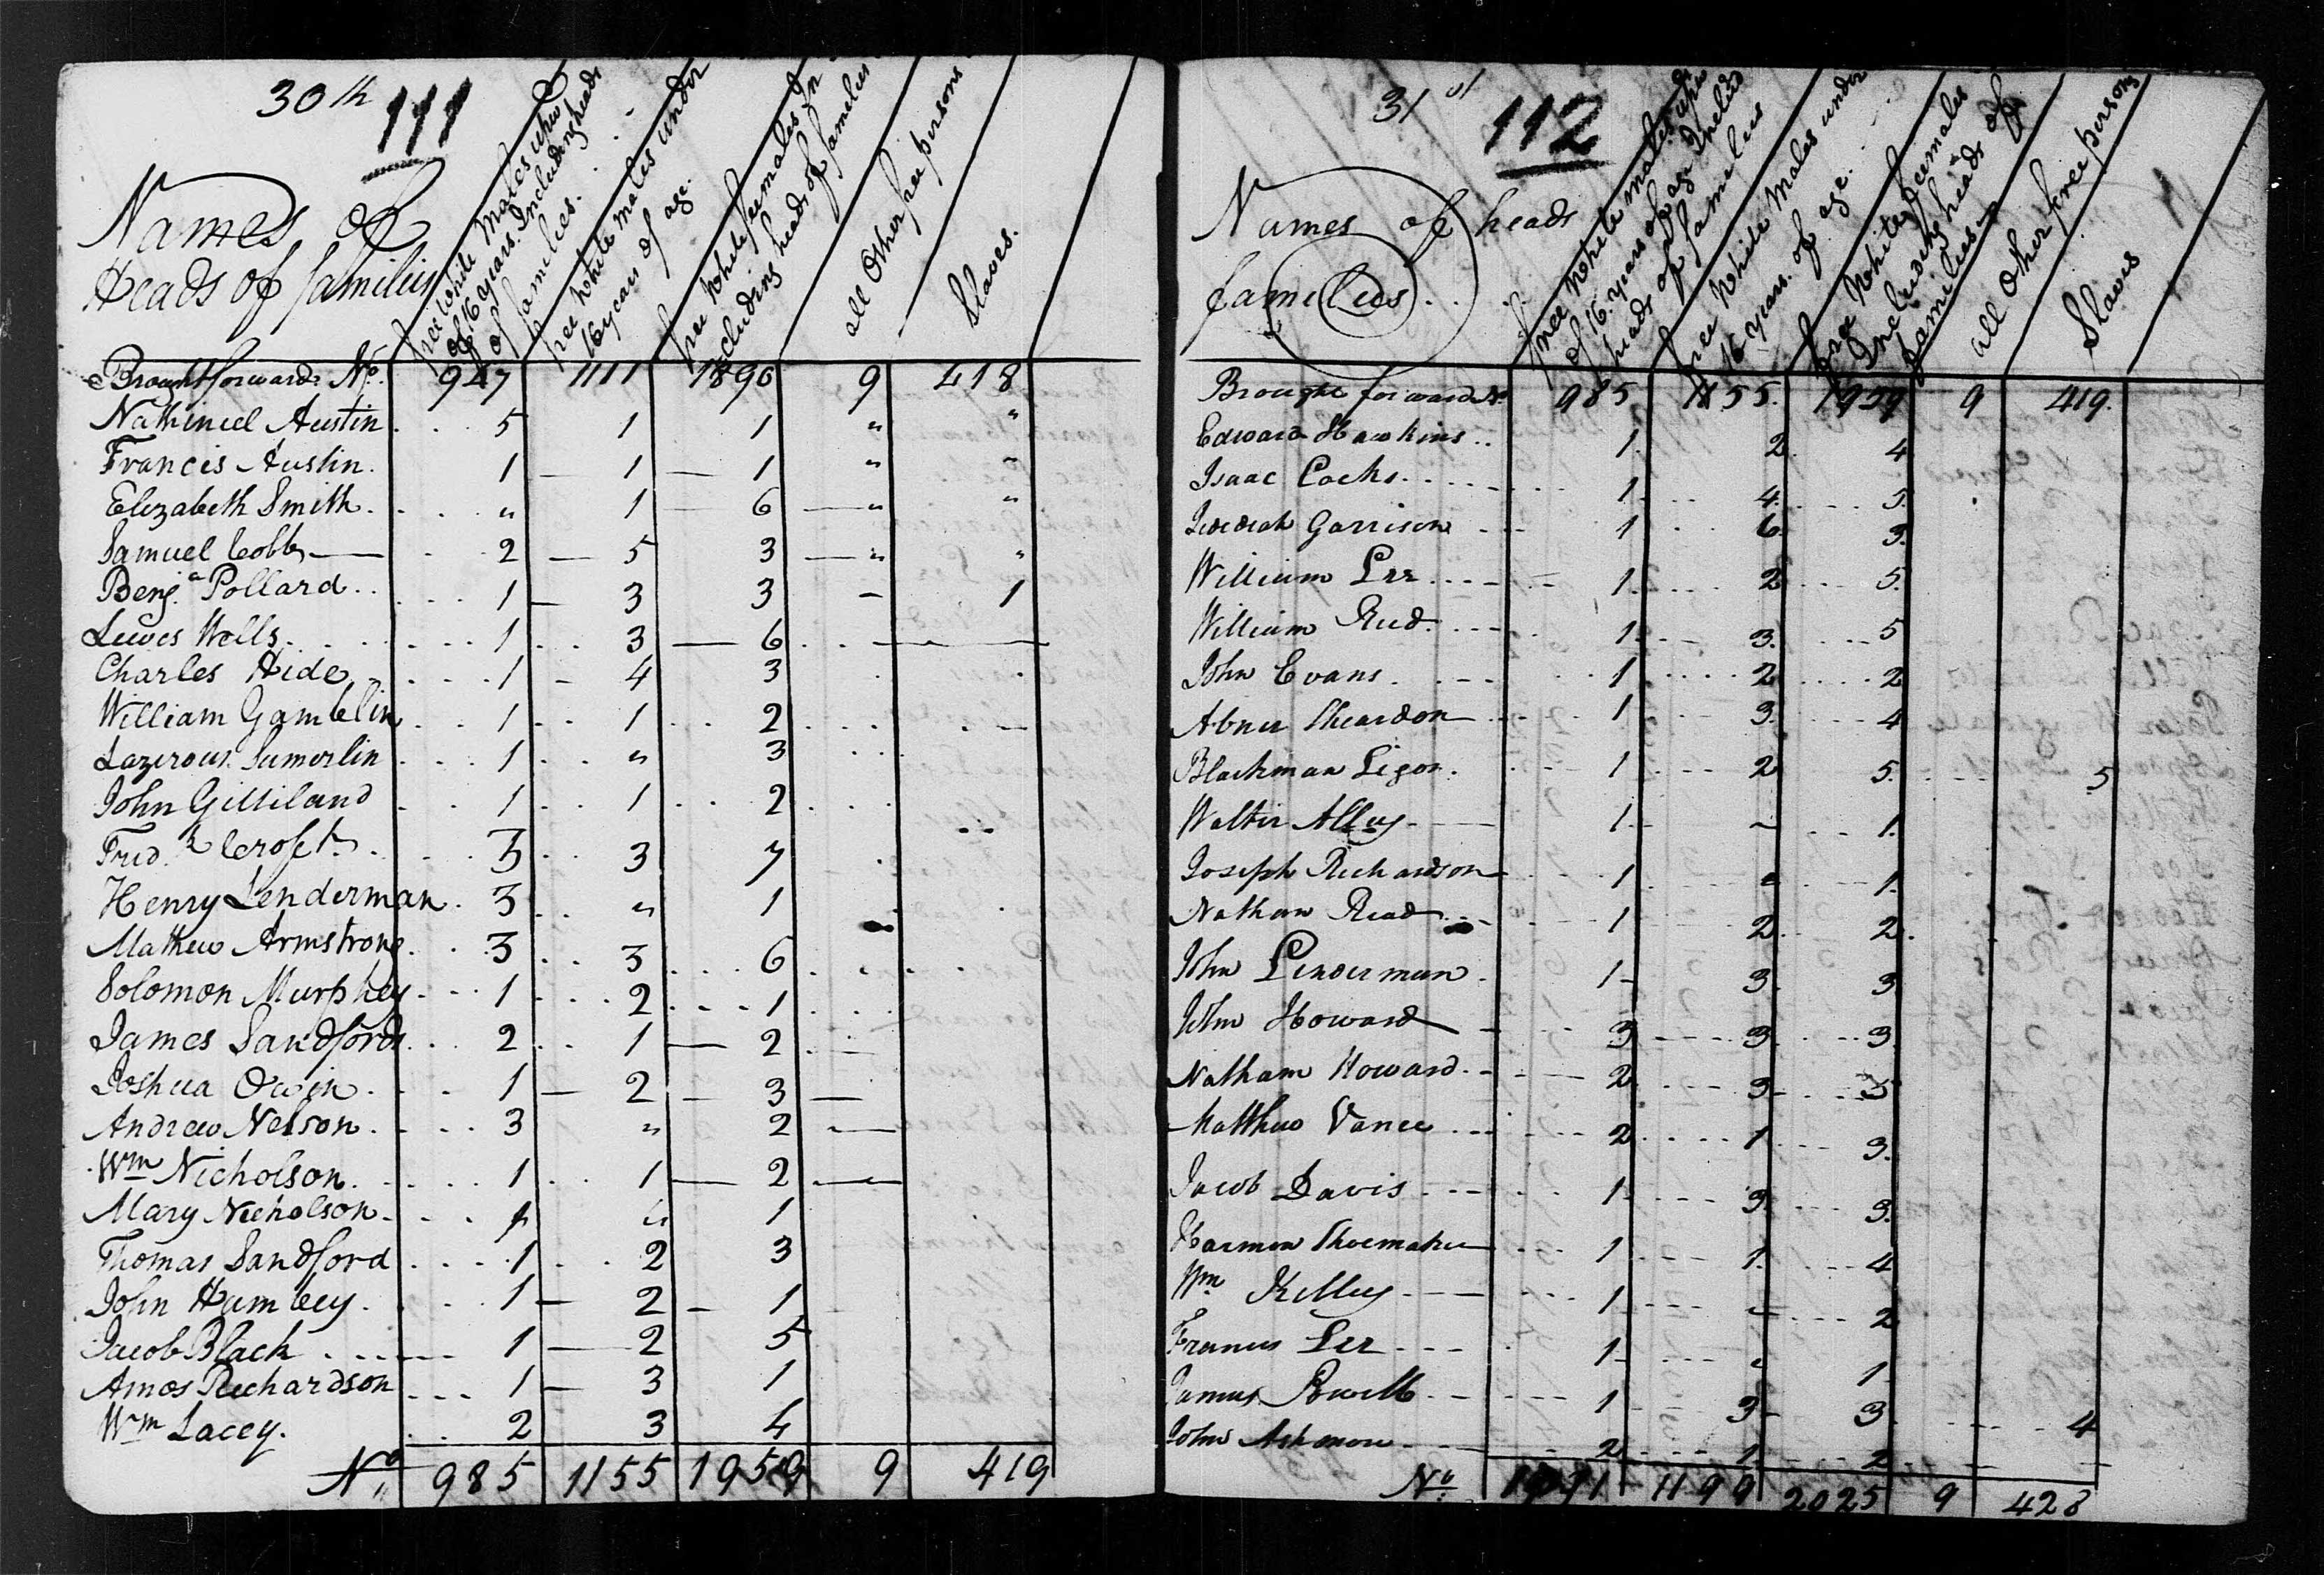 30th 111
Names of
Heads of families
free White Males upwd
of 16 years. Including heads
of families.
free White males under
16 years of age.
free White feemales In
cluding heads of families
all Other free persons
Slaves.
Brought forward No. 947 1111 1896 9 418
Nathiniel Austin . . 5 1 1 " "
Francis Austin. 1 — 1 — 1 " "
Elizabeth Smith . . . " 1 — 6 — " "
Samuel Cobb — . 2 — 5 3 — " "
Benja. Pollard . . . . . 1 — 3 3 — 1
Lewes Wells . . . . . 1 . . 3 — 6 . . —
Charles Hide . . . . 1 - 4 3 . .
William Gamblin . . . 1 . . 1 . . 2 . . . . . —
Lazerous Sumerlin . . . 1 . . " 3 . . .
John Gilliland . . 1 . . 1 . . 2 . . .
Fred.k Croft . . . 3 . . 3 7 .
Henry Lenderman . 3 . . " 1 .
Mathew Armstrong . . 3 . . 3 . . . 6 . . . .
Solomon Murphey . . . 1 . . . 2 . . . 1 . . .
James Sandford . . . 2 . . 1 — 2 . —
Joshua Owin . . . 1 — 2 — 3 —
Andrew Nelson . . . . 3 " 2 —
Wm Nicholson . . . . 1 . . 1 — 2 —
Mary Nicholson . . . " 1
Thomas Sandford . . . . 1 . . 2 3
John Humbey . . . . 1 — 2 — 1
Jacob Black . . . . 1 — 2 5
Amos Richardson . . . 1 — 3 1
Wm Lacey. . . 2 3 4
No. 985 1155 1959 9 419
31st 112
Names of heads
families
free White males upwd
of 16 years of age Includ
heads of families
free White Males under
16 years of age.
free White feemales
Including heads of
families
all Other free persons
Slaves
Brought forward No 985 1155 1959 9 419
Edward Hawkins . . 1 2 4
Isaac Cocks . . . . 1 . . . 4 . . . . 5
Jedediah Garrison . . . 1 . . 6 3
William Lee . . . . 1 . . . . 2 . . . 5
William Reed . . . . 1 . . . 3 . . . . 5
John Evans . . . . 1 . . . . 2 . . . . 2
Abner Sheardon . . . 1 . . . 3 . . . 4
Blackman Ligon . . . 1 . . . 2 5 . . . 5
Walter Alley . — 1 . - . . . 1
Joseph Richardson . . 1 . . . - 1
Nathan Read . . . 1 2 . 2
John Linderman . 1 - 3 3
John Howard — . . 3 . . . . 3 . . . . 3
Natham Howard . . . 2 . . . 3 . . . . 5
Matthew Vance . . . . . 2 . . . . 1 . . . 3
Jacob Davis . . . . . 1 . . . 3 . . . 3
Harmon Shoemaker . . . 1 1 . . . 4
Wm Kelley . . . . . 1 . . . - . . . 2
Francis Lee . . . . 1 . . . - 1
James Powell . . . . . 1 3 3 . . . . 4
John Ashmore . . . 2 . . . . 1 . . . 2 .
No. 1199 2025 9 428